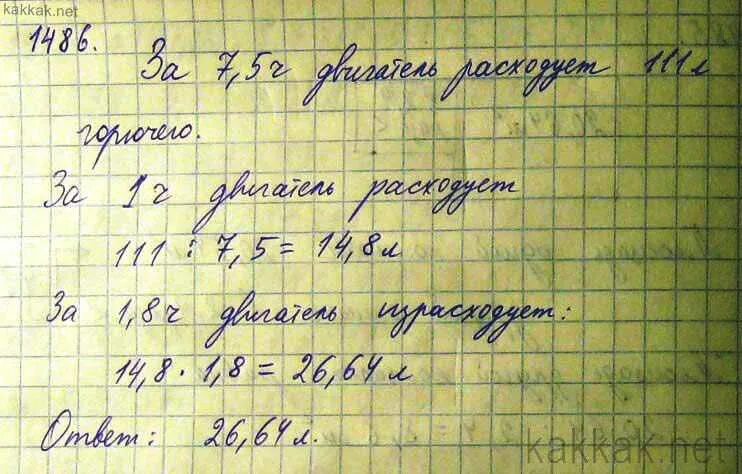 kakkak.net
1486.
За 7,5 ч двигатель расходует 111 л
горючего.
За 1 ч двигатель расходует
111 : 7,5 = 14,8 л
За 1,8 ч двигатель израсходует:
14,8 · 1,8 = 26,64 л
Ответ: 26,64 л.
kakkak.net